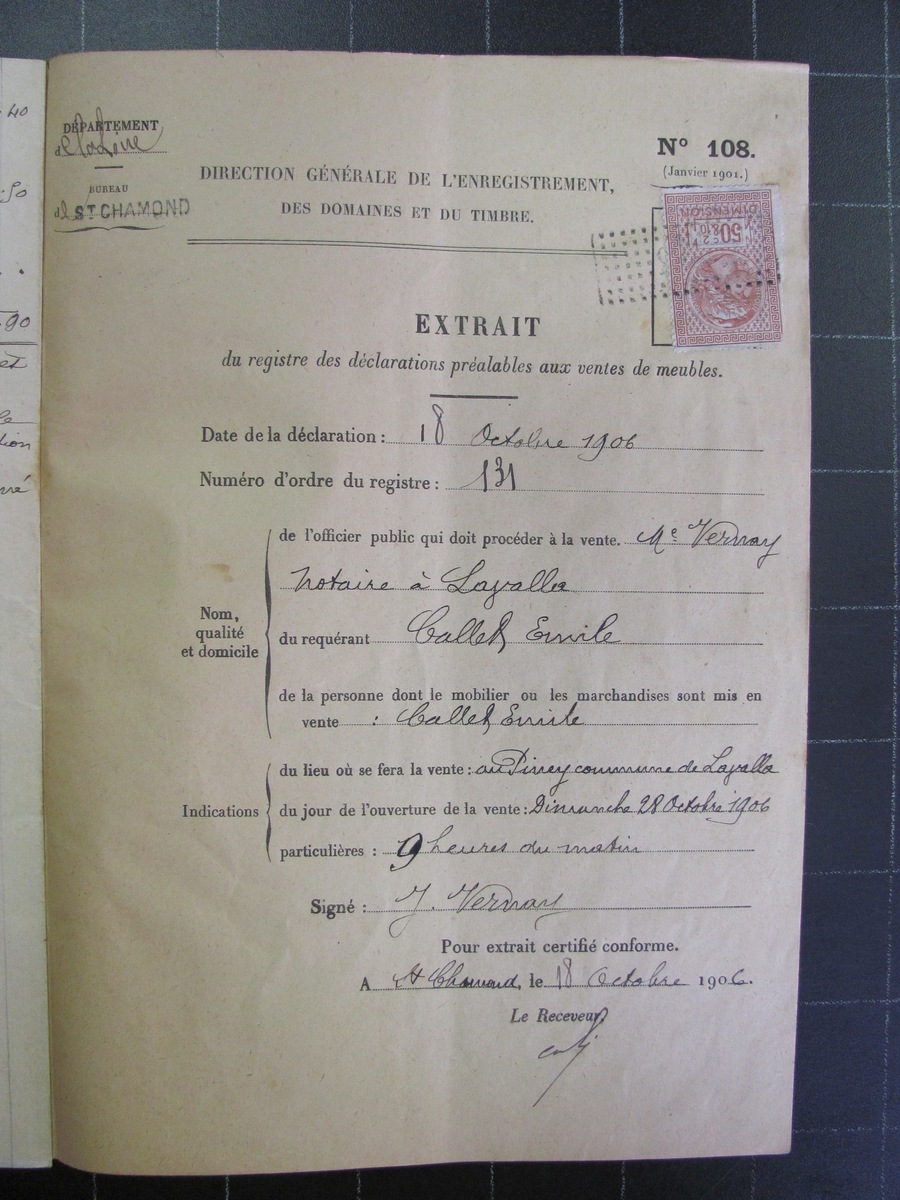 40
50
90
et
tion
DÉPARTEMENT
de la Loire
BUREAU
d ST CHAMOND
DIRECTION GÉNÉRALE DE L'ENREGISTREMENT,
DES DOMAINES ET DU TIMBRE.
N° 108.
(Janvier 1901.)
DIMENSION
50
EXTRAIT
du registre des déclarations préalables aux ventes de meubles.
Date de la déclaration : 18 Octobre 1906
Numéro d'ordre du registre : 131
Nom,
qualité
et domicile
de l'officier public qui doit procéder à la vente. Me Vernay
notaire à Lavalla
du requérant Callet Emile
de la personne dont le mobilier ou les marchandises sont mis en
vente : Callet Emile
Indications
du lieu où se fera la vente : au Piney commune de Lavalla
du jour de l'ouverture de la vente : Dimanche 28 Octobre 1906
particulières : 9 heures du matin
Signé : J. Vernay
Pour extrait certifié conforme.
A St Chamond, le 18 Octobre 1906.
Le Receveur,